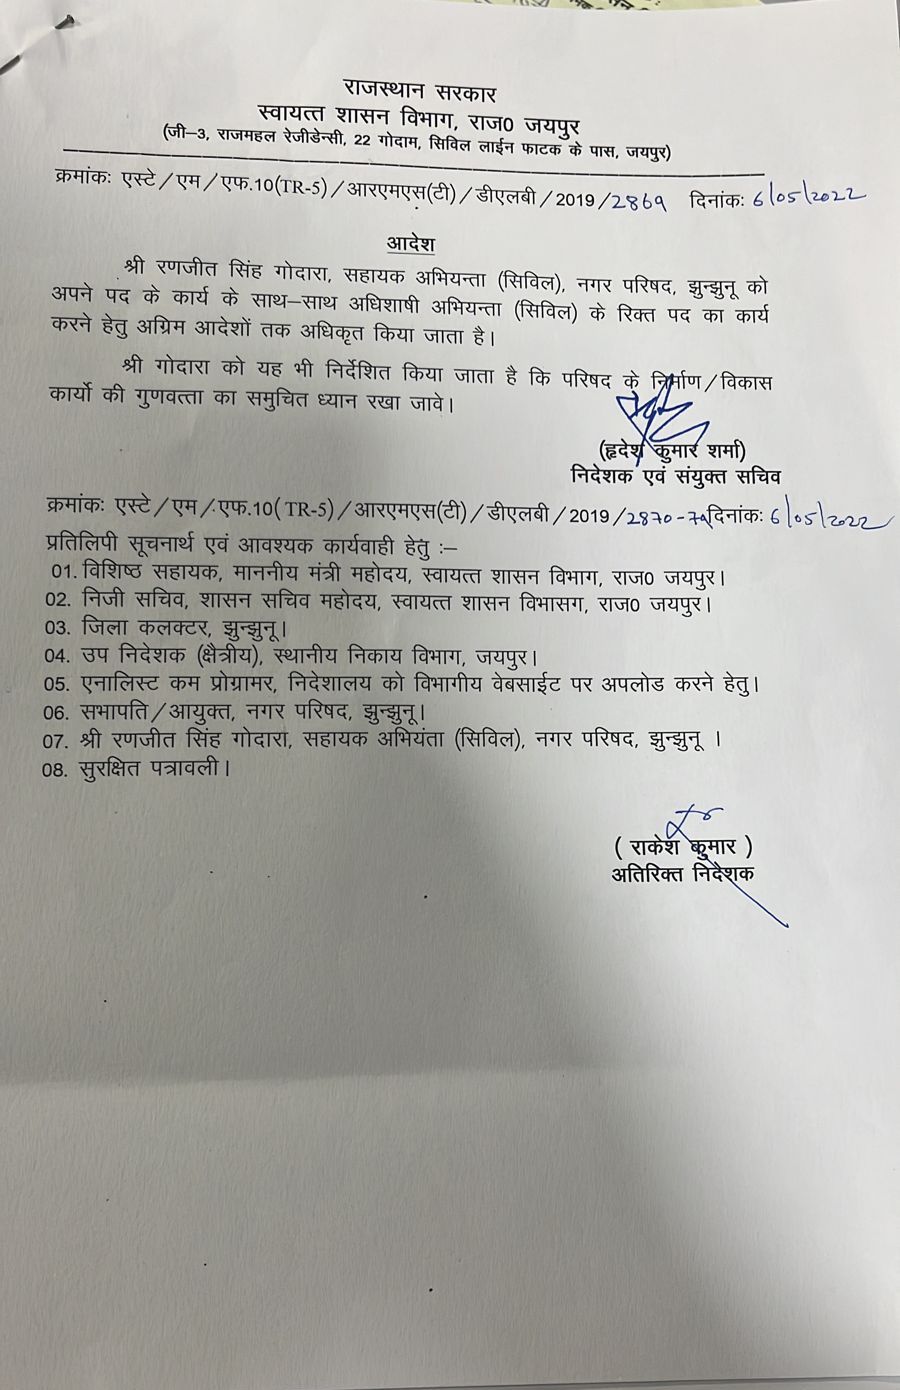 राजस्थान सरकार
स्वायत्त शासन विभाग, राज0 जयपुर
(जी–3, राजमहल रेजीडेन्सी, 22 गोदाम, सिविल लाईन फाटक के पास, जयपुर)
क्रमांकः एस्टे/एम/एफ.10(TR-5)/आरएमएस(टी)/डीएलबी/2019/2869 दिनांकः 6/05/2022
आदेश
श्री रणजीत सिंह गोदारा, सहायक अभियन्ता (सिविल), नगर परिषद, झुन्झुनू को
अपने पद के कार्य के साथ–साथ अधिशाषी अभियन्ता (सिविल) के रिक्त पद का कार्य
करने हेतु अग्रिम आदेशों तक अधिकृत किया जाता है।
श्री गोदारा को यह भी निर्देशित किया जाता है कि परिषद के निर्माण/विकास
कार्यो की गुणवत्ता का समुचित ध्यान रखा जावे।
(हृदेश कुमार शर्मा)
निदेशक एवं संयुक्त सचिव
क्रमांकः एस्टे/एम/एफ.10(TR-5)/आरएमएस(टी)/डीएलबी/2019/2870-79 दिनांकः 6/05/2022
प्रतिलिपी सूचनार्थ एवं आवश्यक कार्यवाही हेतु :–
01. विशिष्ठ सहायक, माननीय मंत्री महोदय, स्वायत्त शासन विभाग, राज0 जयपुर।
02. निजी सचिव, शासन सचिव महोदय, स्वायत्त शासन विभासग, राज0 जयपुर।
03. जिला कलक्टर, झुन्झुनू।
04. उप निदेशक (क्षैत्रीय), स्थानीय निकाय विभाग, जयपुर।
05. एनालिस्ट कम प्रोग्रामर, निदेशालय को विभागीय वेबसाईट पर अपलोड करने हेतु।
06. सभापति/आयुक्त, नगर परिषद, झुन्झुनू।
07. श्री रणजीत सिंह गोदारा, सहायक अभियंता (सिविल), नगर परिषद, झुन्झुनू ।
08. सुरक्षित पत्रावली।
( राकेश कुमार )
अतिरिक्त निदेशक